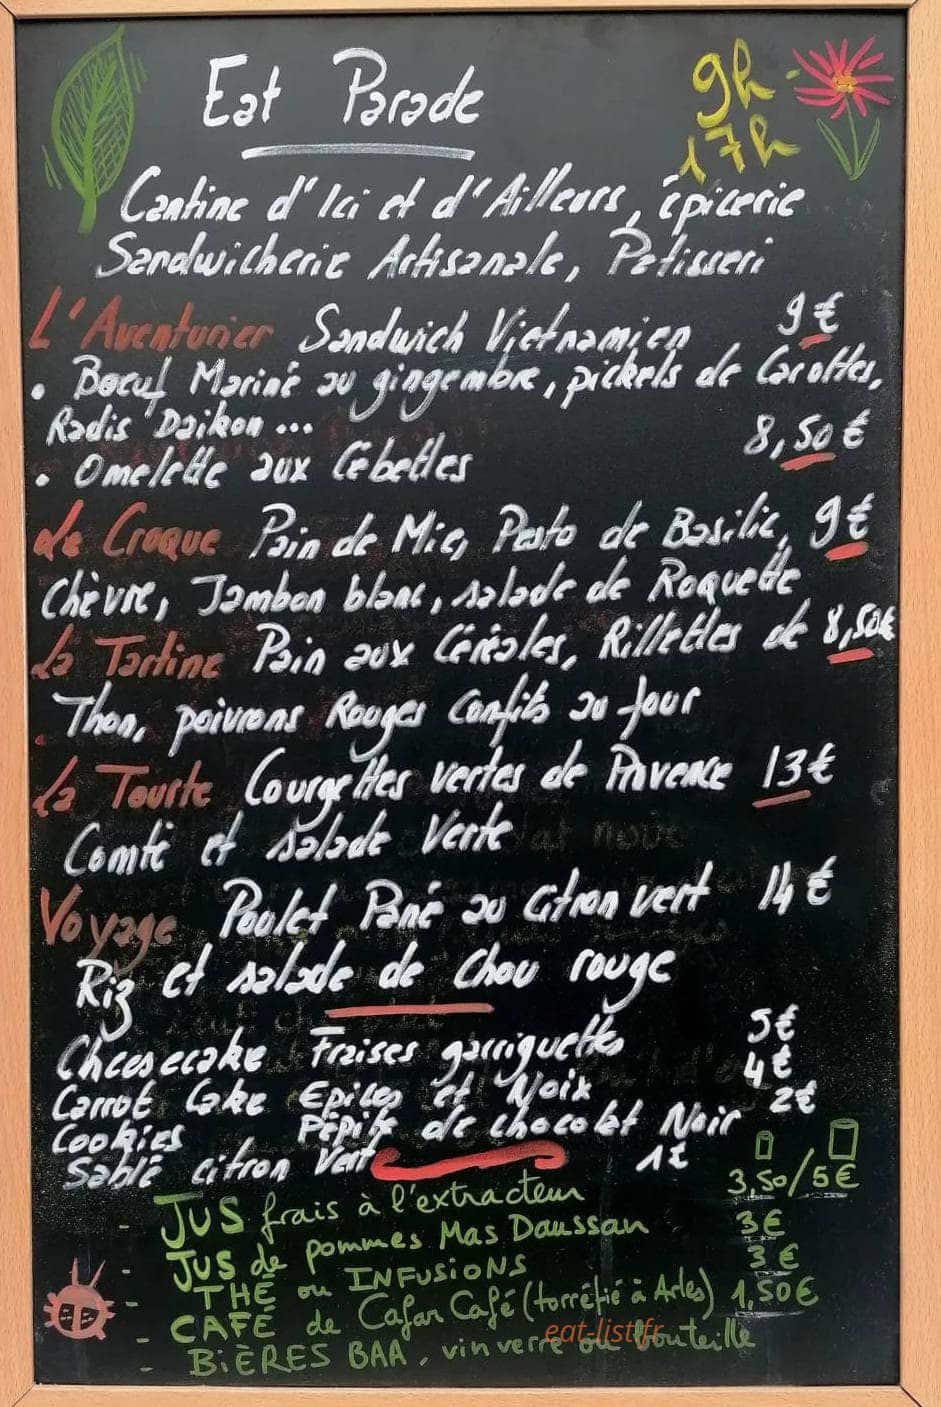 Eat Parade
9h-
17h
Cantine d'Ici et d'Ailleurs, épicerie
Sandwicherie Artisanale, Patisseri
L'Aventurier Sandwich Vietnamien 9€
• Boeuf Mariné au gingembre, pickels de Carottes,
Radis Daikon ...
8,50€
• Omelette aux Cébettes
Le Croque Pain de Mie, Pesto de Basilic, 9€
Chèvre, Jambon blanc, salade de Roquette
La Tartine Pain aux Céréales, Rillettes de 8,50€
Thon, poivrons Rouges Confits au four
La Tourte Courgettes vertes de Provence 13€
Comté et salade Verte
Voyage Poulet Pané au Citron vert 14€
Riz et salade de Chou rouge
Cheesecake Fraises garriguettes 5€
Carrot Cake Epices et Noix 4€
Cookies Pépite de chocolat Noir 2€
Sablé citron Vert 1€
- JUS frais à l'extracteur 3,50/5€
- JUS de pommes Mas Daussan 3€
- THÉ ou INFUSIONS 3€
- CAFÉ de Cafar Café (torréfié à Arles) 1,50€
- BIÈRES BAA, vin verre ou bouteille
eat-list.fr